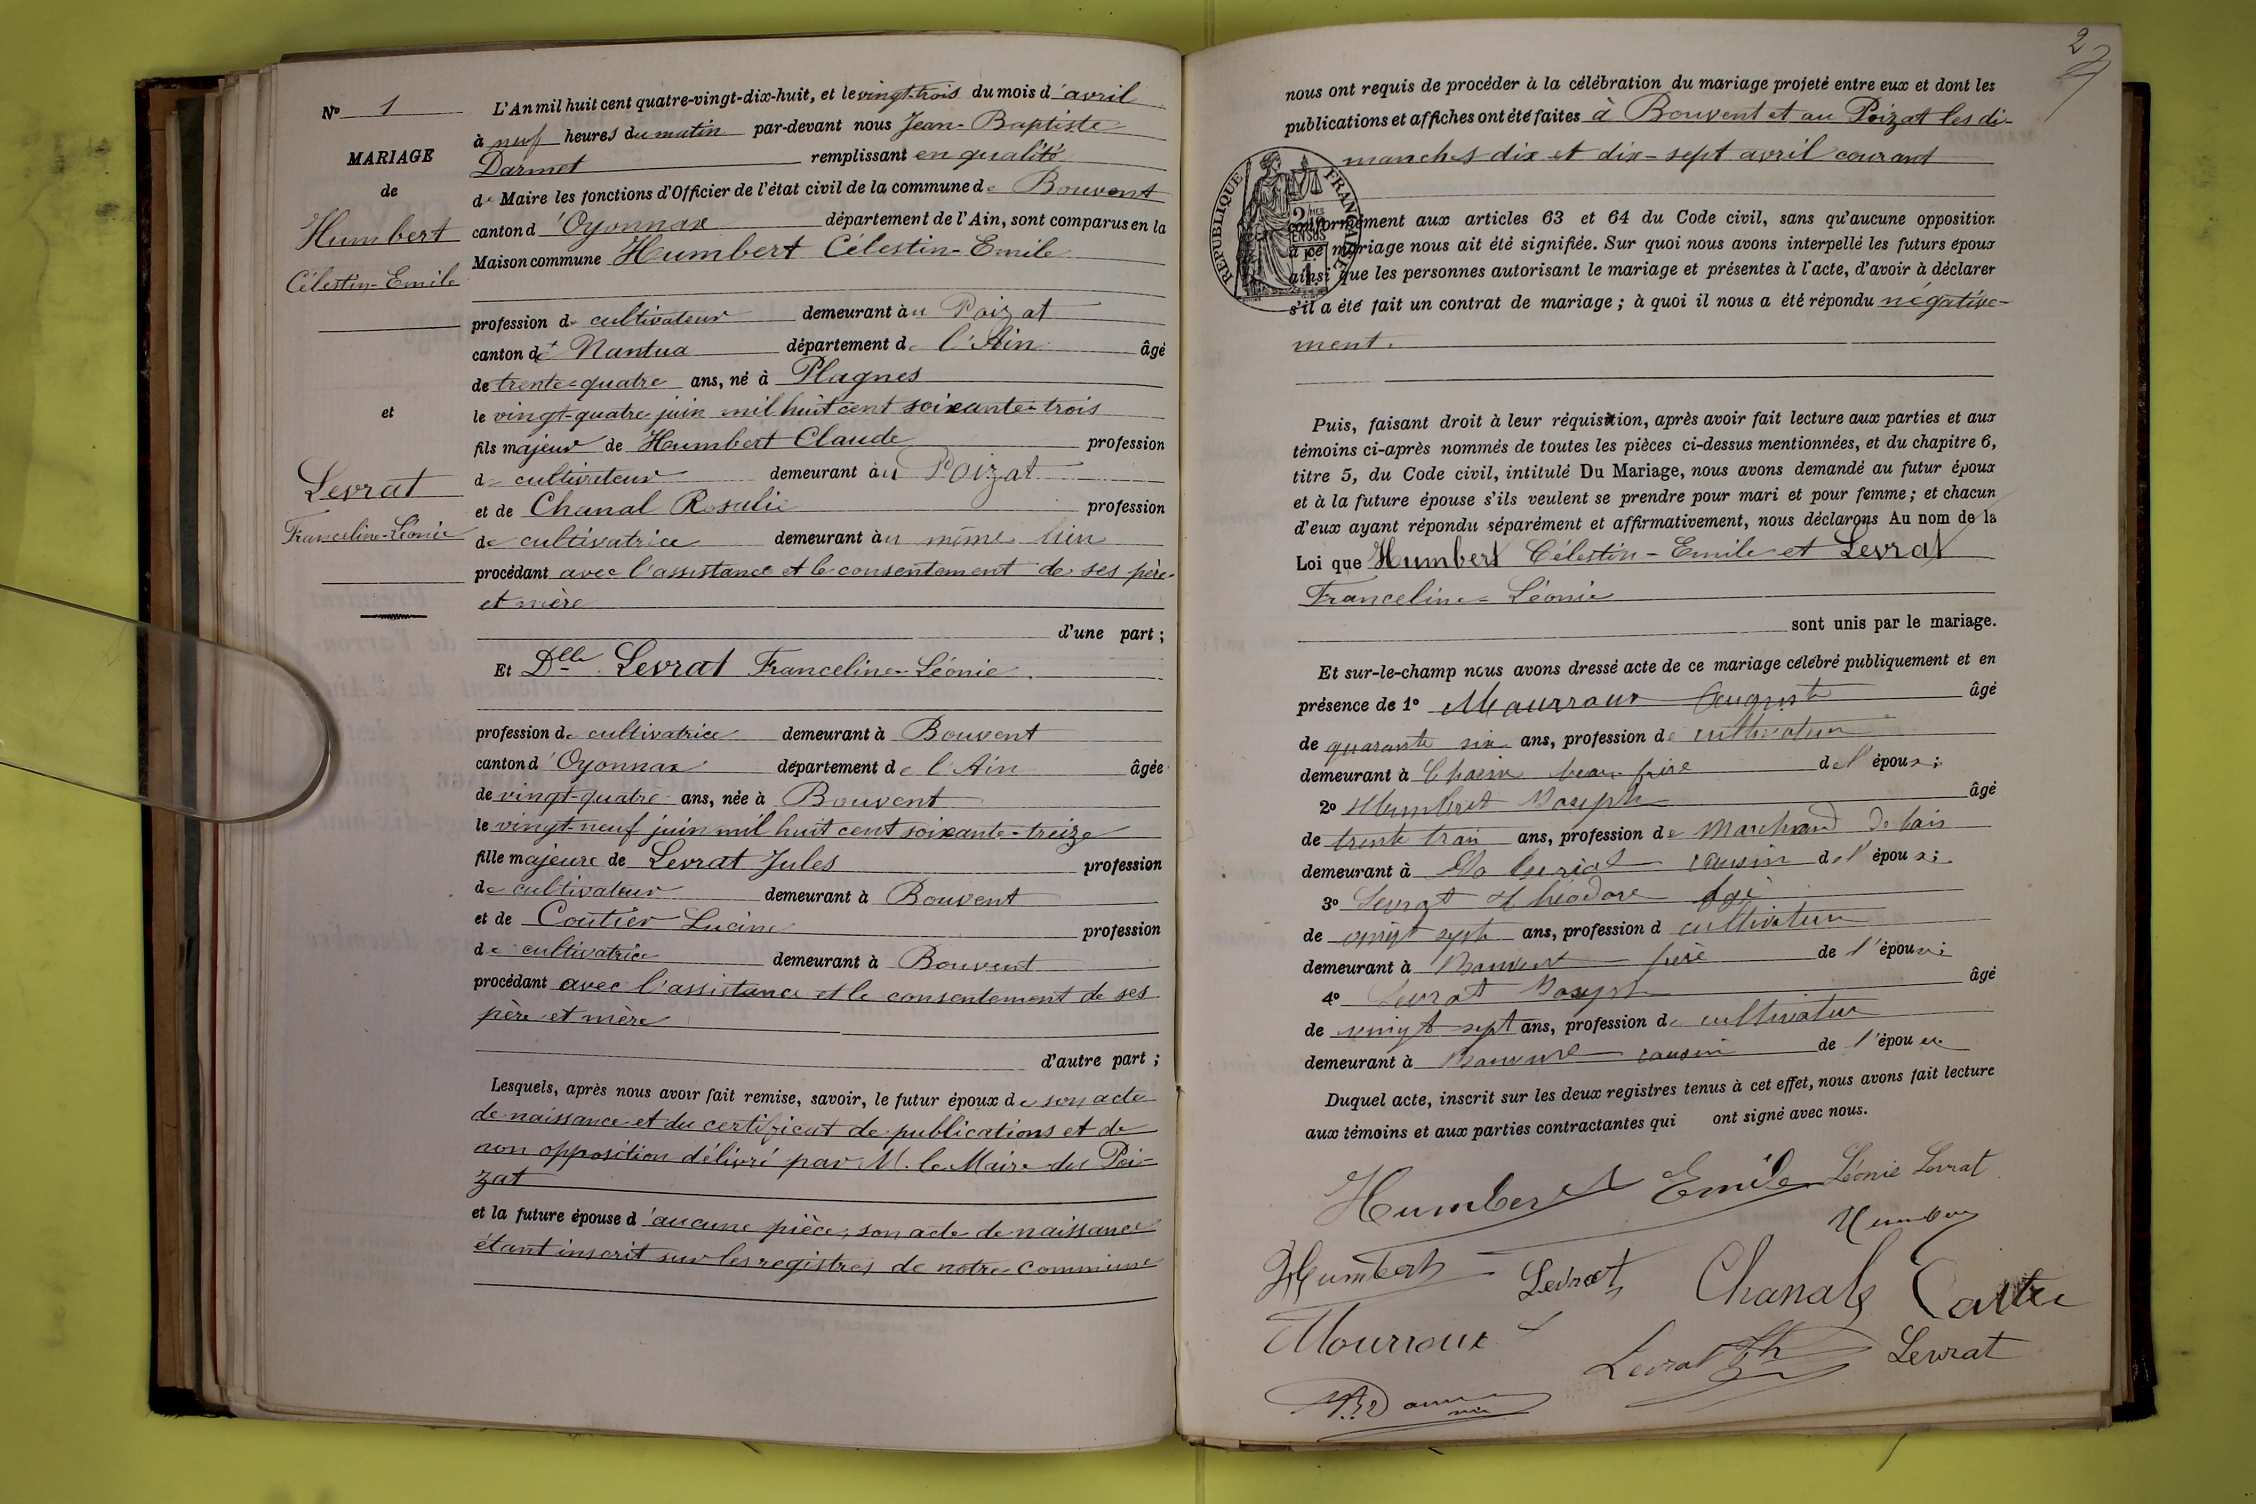 N° 1
MARIAGE
de
Humbert
Célestin-Emile
et
Levrat
Franceline-Léonie
L'An mil huit cent quatre-vingt-dix-huit, et le vingt-trois du mois d'avril
à neuf heures du matin par-devant nous Jean-Baptiste
Darmet remplissant en qualité
de Maire les fonctions d'Officier de l'état civil de la commune de Bouvent
canton d'Oyonnax département de l'Ain, sont comparus en la
Maison commune Humbert Célestin-Emile
profession de cultivateur demeurant au Poizat
canton de Nantua département de l'Ain âgé
de trente-quatre ans, né à Plagnes
le vingt-quatre juin mil huit cent soixante-trois
fils majeur de Humbert Claude profession
de cultivateur demeurant au Poizat
et de Chanal Rosalie profession
de cultivatrice demeurant au même lieu
procédant avec l'assistance et le consentement de ses père
et mère
d'une part ;
Et Dlle Levrat Franceline-Léonie
profession de cultivatrice demeurant à Bouvent
canton d'Oyonnax département de l'Ain âgée
de vingt-quatre ans, née à Bouvent
le vingt-neuf juin mil huit cent soixante-treize
fille majeure de Levrat Jules profession
de cultivateur demeurant à Bouvent
et de Coutier Lucine profession
de cultivatrice demeurant à Bouvent
procédant avec l'assistance et le consentement de ses
père et mère
d'autre part ;
Lesquels, après nous avoir fait remise, savoir, le futur époux de son acte
de naissance et du certificat de publications et de
non opposition délivré par M. le Maire du Poi-
zat
et la future épouse d'aucune pièce, son acte de naissance
étant inscrit sur les registres de notre commune
2
nous ont requis de procéder à la célébration du mariage projeté entre eux et dont les
publications et affiches ont été faites à Bouvent et au Poizat les di-
manches dix et dix-sept avril courant
RÉPUBLIQUE FRANÇAISE
conformément aux articles 63 et 64 du Code civil, sans qu'aucune opposition
à ce mariage nous ait été signifiée. Sur quoi nous avons interpellé les futurs époux
ainsi que les personnes autorisant le mariage et présentes à l'acte, d'avoir à déclarer
s'il a été fait un contrat de mariage ; à quoi il nous a été répondu négative-
ment.
Puis, faisant droit à leur réquisition, après avoir fait lecture aux parties et aux
témoins ci-après nommés de toutes les pièces ci-dessus mentionnées, et du chapitre 6,
titre 5, du Code civil, intitulé Du Mariage, nous avons demandé au futur époux
et à la future épouse s'ils veulent se prendre pour mari et pour femme ; et chacun
d'eux ayant répondu séparément et affirmativement, nous déclarons Au nom de la
Loi que Humbert Célestin-Emile et Levrat
Franceline-Léonie
sont unis par le mariage.
Et sur-le-champ nous avons dressé acte de ce mariage célébré publiquement et en
présence de 1° Mourroux Auguste âgé
de quarante six ans, profession de cultivateur
demeurant à beau frère de l'époux ;
2° Humbert Joseph âgé
de trente trois ans, profession de Marchand de bois
demeurant à cousin de l'époux ;
3° Levrat Théodore âgé
de vingt sept ans, profession d cultivateur
demeurant à Bouvent frère de l'épouse ;
4° Levrat Joseph âgé
de vingt sept ans, profession de cultivateur
demeurant à Bouvent cousin de l'épouse
Duquel acte, inscrit sur les deux registres tenus à cet effet, nous avons fait lecture
aux témoins et aux parties contractantes qui ont signé avec nous.
Humbert Emile Léonie Levrat
Humbert
Humbert Levrat Chanal
Mourroux Levrat Th Levrat